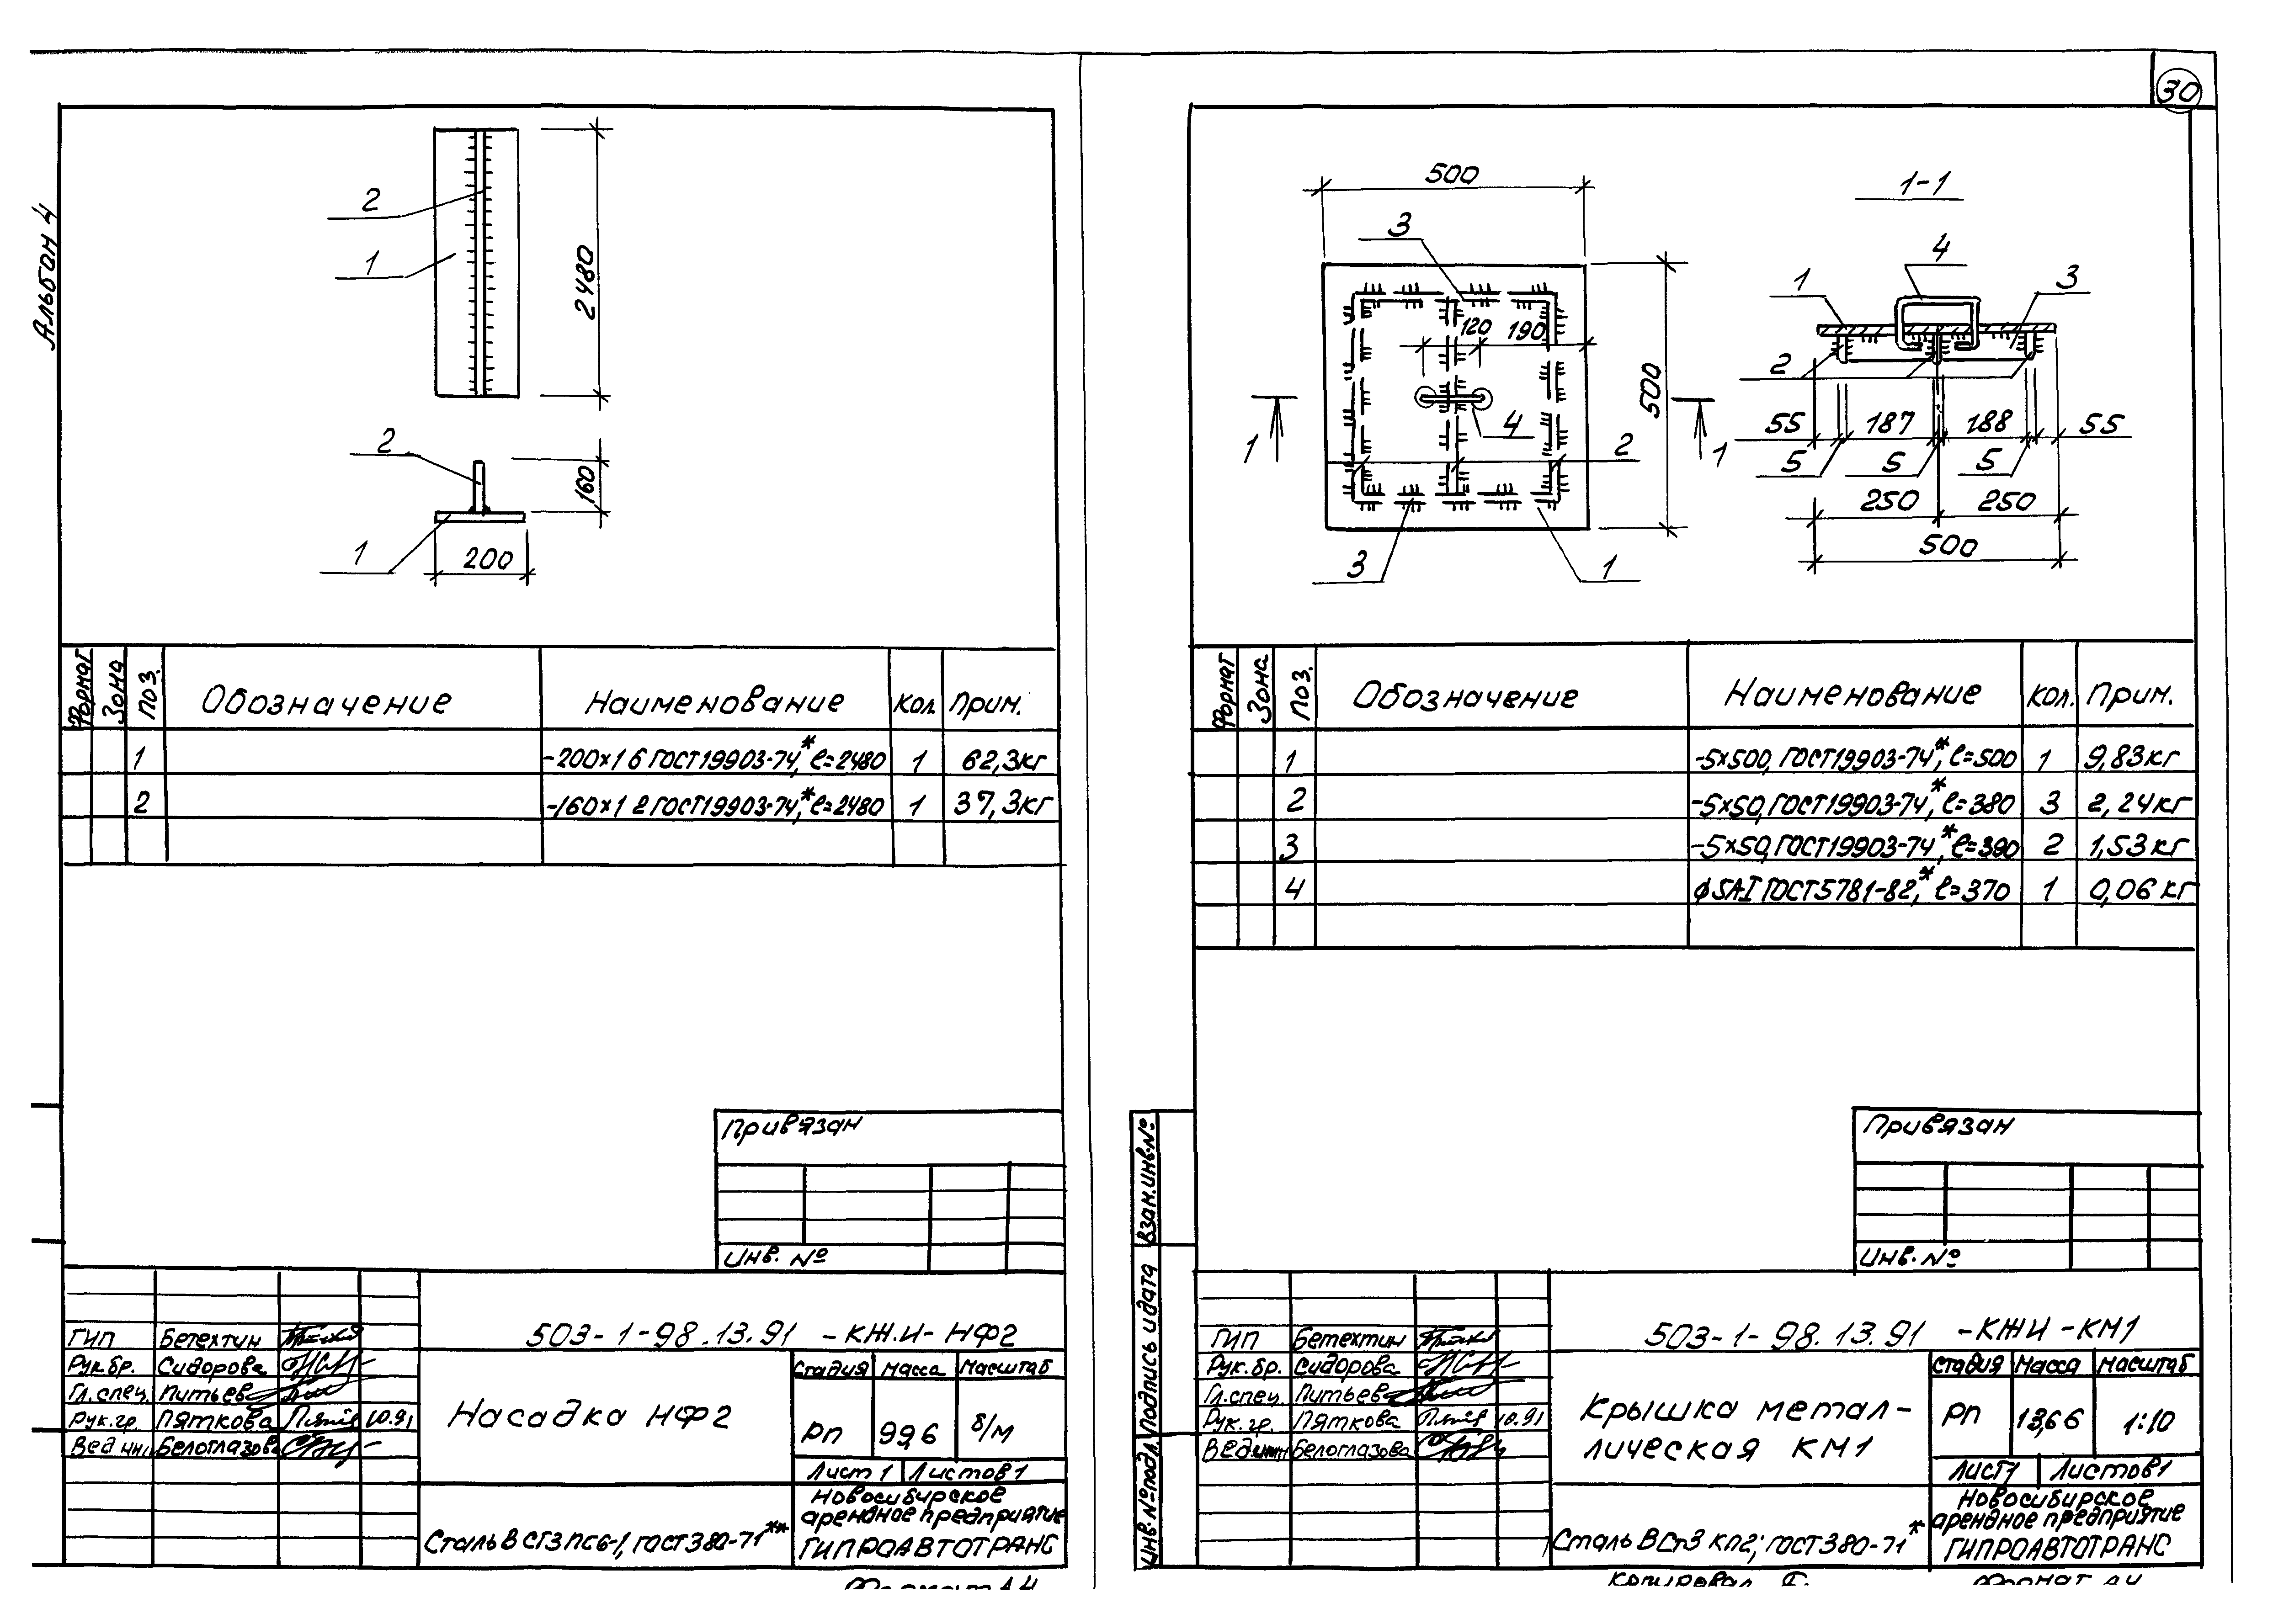 30
Альбом 4
2
1
2480
2
160
1
200
Формат Зона Поз. Обозначение Наименование Кол. Прим.
1 -200×16 ГОСТ19903-74*, ℓ=2480 1 62,3кг
2 -160×12 ГОСТ19903-74*, ℓ=2480 1 37,3кг
Привязан
Инв. №
503-1-98.13.91 -КЖИ-НФ2
ГИП Бетехтин
Рук.бр. Сидорова
Гл.спец. Питьев
Рук.гр. Пяткова 10.91
Вед инж Белоглазова
Насадка НФ2
Стадия Масса Масштаб
РП 99,6 б/м
Лист 1 Листов 1
Сталь ВСт3пс6-1, ГОСТ380-71**
Новосибирское
арендное предприятие
ГИПРОАВТОТРАНС
Формат А4
500
3
120 190
500
4
1 1
2
3 1
1-1
4
1 3
2
55 187 188 55
5 5 5
250 250
500
Формат Зона Поз. Обозначение Наименование Кол. Прим.
1 -5×500, ГОСТ19903-74*, ℓ=500 1 9,83кг
2 -5×50, ГОСТ19903-74*, ℓ=380 3 2,24кг
3 -5×50, ГОСТ19903-74*, ℓ=390 2 1,53кг
4 ϕ5АI ГОСТ5781-82*, ℓ=370 1 0,06кг
Привязан
Инв. №
Взам.инв.№
Подпись и дата
Инв.№подл.
503-1-98.13.91 -КЖИ-КМ1
ГИП Бетехтин
Рук.бр. Сидорова
Гл.спец. Питьев
Рук.гр. Пяткова 10.91
Вед инж Белоглазова
Крышка метал-
лическая КМ1
Стадия Масса Масштаб
РП 13,66 1:10
Лист 1 Листов 1
Сталь ВСт3кп2, ГОСТ380-71*
Новосибирское
арендное предприятие
ГИПРОАВТОТРАНС
Копировал
Формат А4